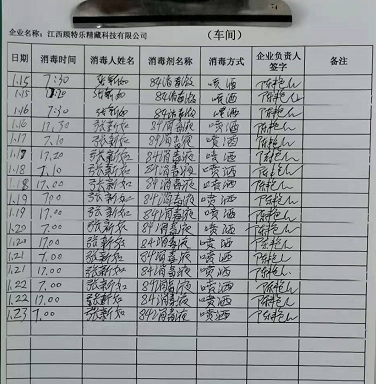 企业名称：江西顾特乐精藏科技有限公司 （车间）
日期 消毒时间 消毒人姓名 消毒剂名称 消毒方式 企业负责人签字 备注
1.15 7:30 张新如 84消毒液 喷洒
1.15 张新如 84消毒液 喷洒
1.16 7:30 张新如 84消毒液 喷洒
1.16 17.30 张新如 84消毒液 喷洒
1.17 7.10 张新如 84消毒液 喷洒
1.17 17.20 张新如 84消毒液 喷洒
1.18 7.10 张新如 84消毒液 喷洒
1.18 17.00 张新如 84消毒液 喷洒
1.19 7.00 张新如 84消毒液 喷洒
1.19 17.00 张新如 84消毒液 喷洒
1.20 7.00 张新如 84消毒液 喷洒
1.20 17.00 张新如 84消毒液 喷洒
1.21 7.00 张新如 84消毒液 喷洒
1.21 17.00 张新如 84消毒液 喷洒
1.22 7.00 张新如 84消毒液 喷洒
1.22 17.00 张新如 84消毒液 喷洒
1.23 7.00 张新如 84消毒液 喷洒